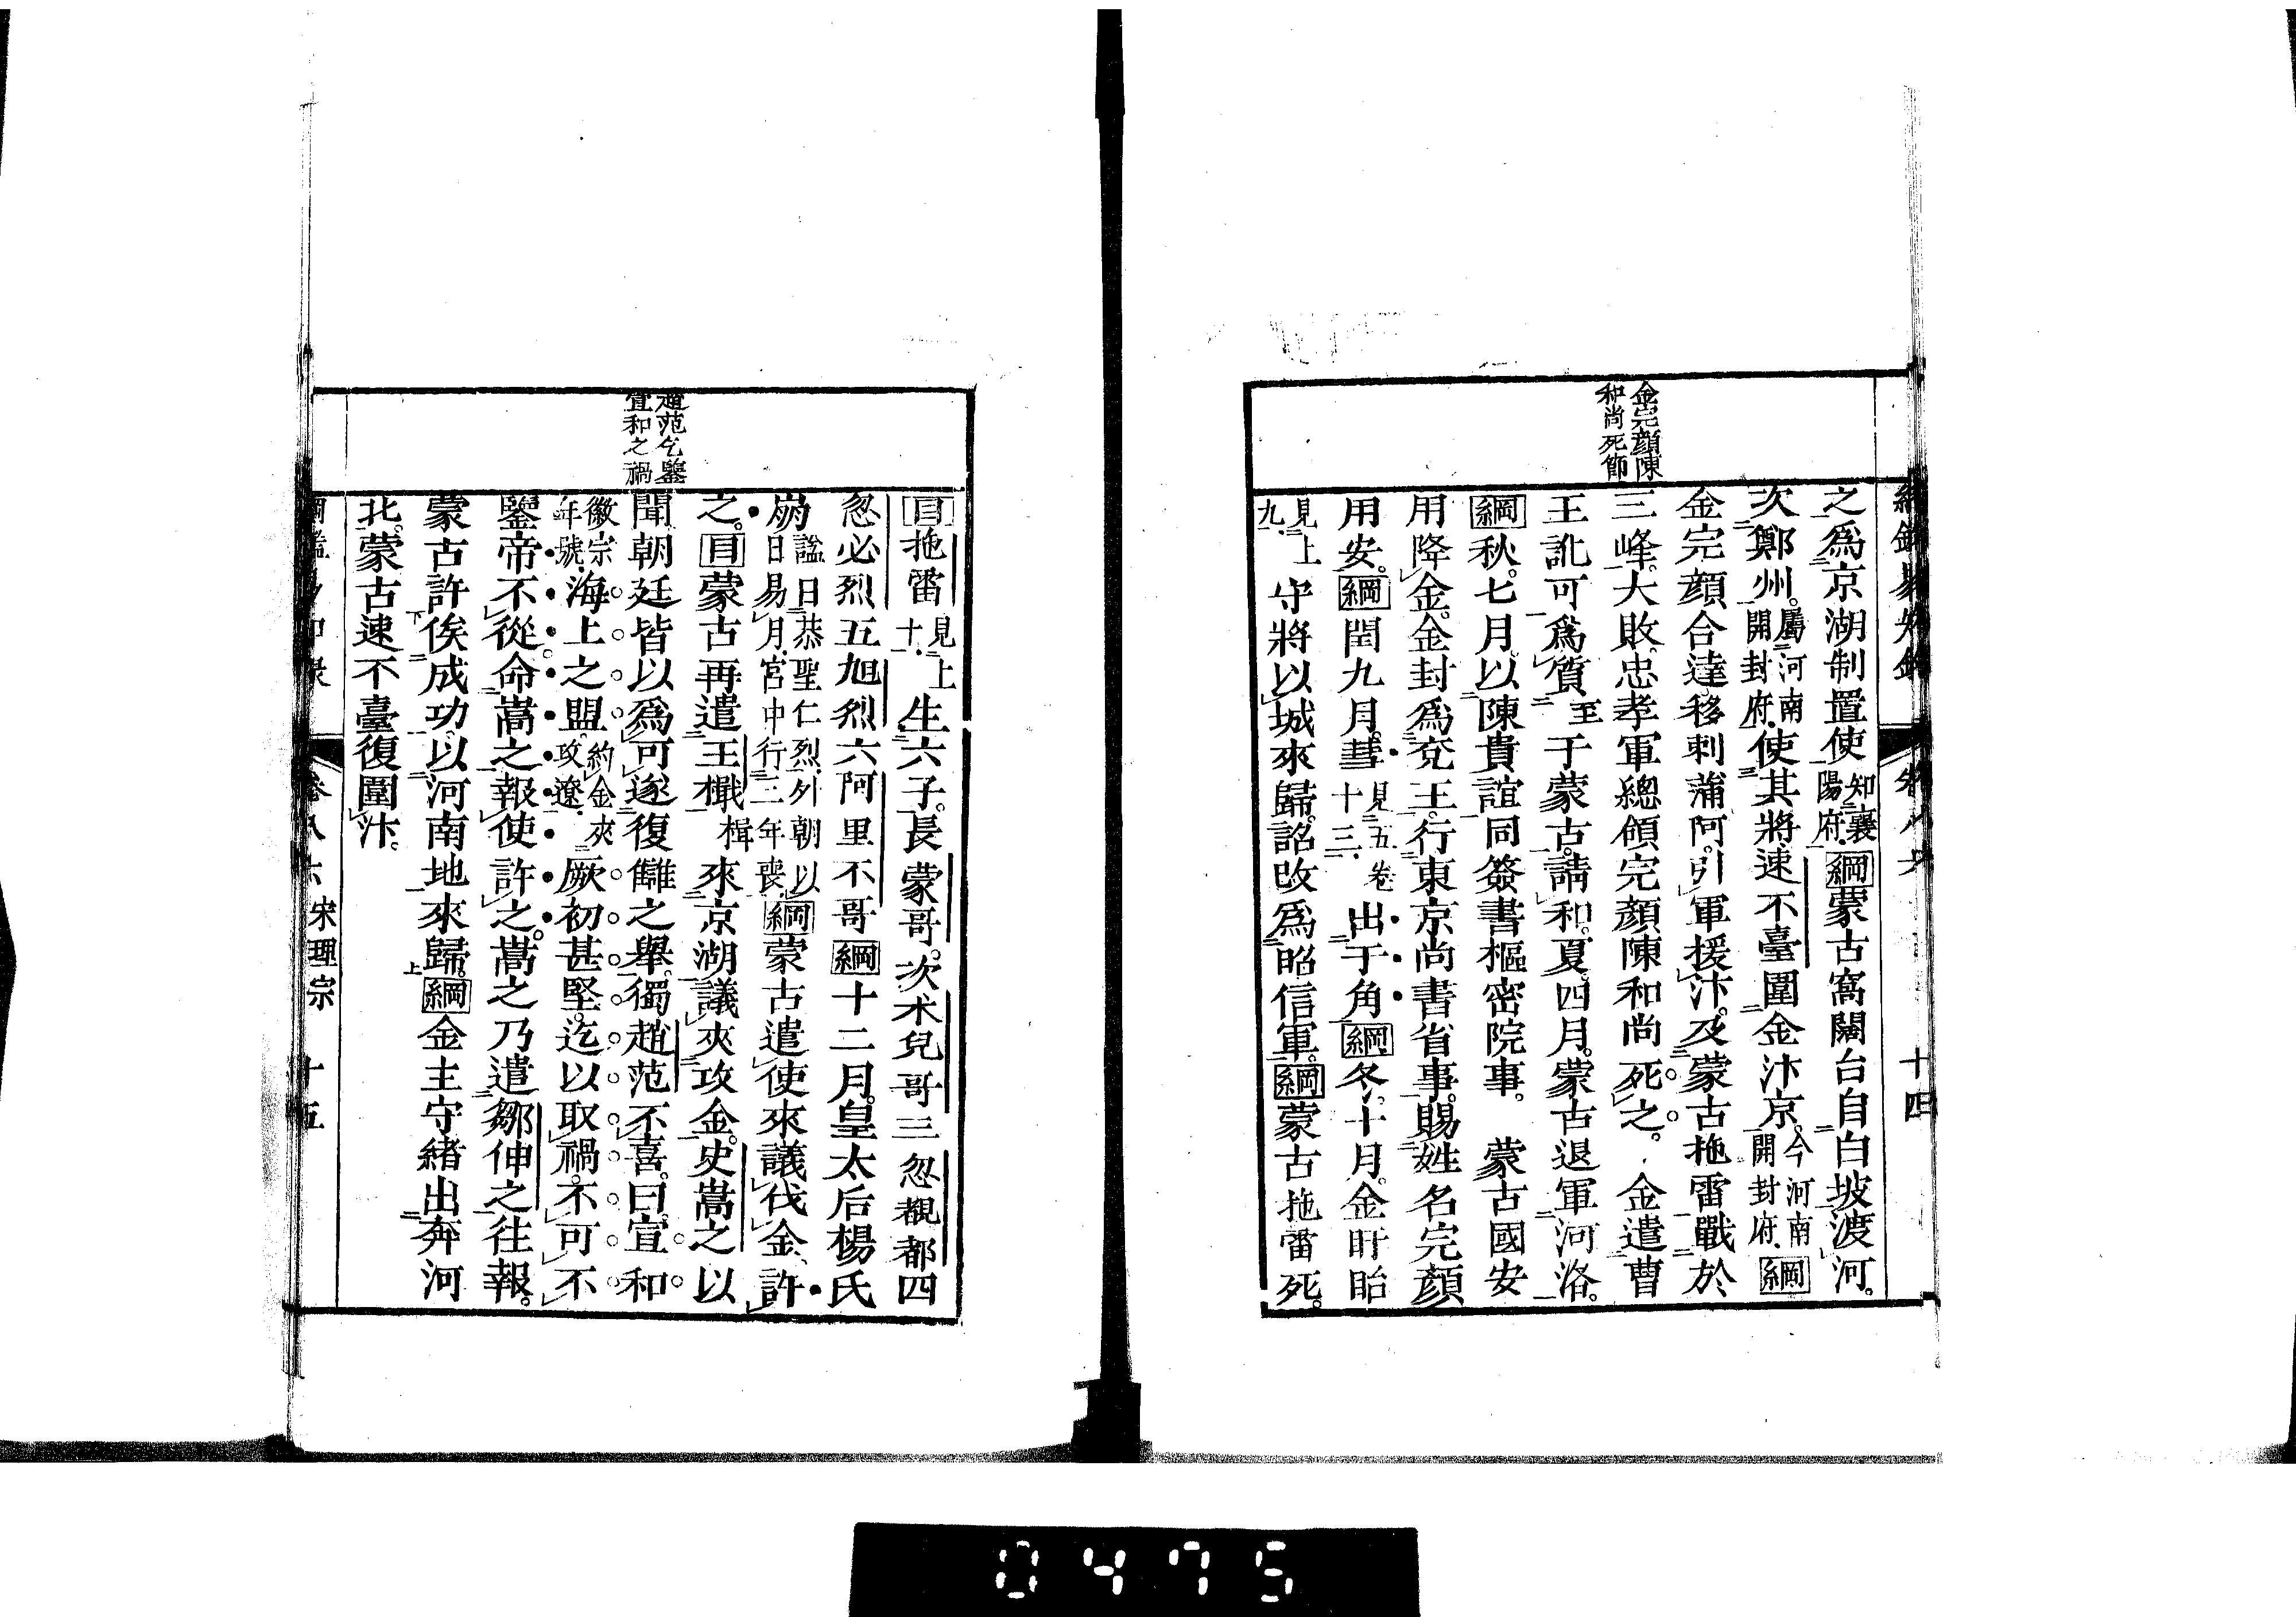 金完顏陳
和尚死節
之爲京湖制置使知襄陽府綱蒙古窩闊台自白坡渡河。
次鄭州。屬河南開封府使其將速不臺圍金汴京。今河南開封府綱
金完顏合達移剌蒲阿。引軍援汴。及蒙古拖雷戰於
三峰。大敗忠孝軍總領完顏陳和尚死之。金遣曹
王訛可爲質至于蒙古。請和。夏四月。蒙古退軍河洛。
綱秋七月。以陳貴誼同簽書樞密院事。蒙古國安
用降金。金封爲兗王。行東京尚書省事。賜姓名完顏
用安。綱閏九月。彗見五卷十三出于角綱冬。十月。金盱眙
見上九守將以城來歸。詔改爲昭信軍。綱蒙古拖雷死。
卷八六
十四
趙范乞鑒
宣和之禍
目拖雷見上十生六子。長蒙哥。次朮兒哥三忽覩都四
忽必烈五旭烈六阿里不哥綱十二月。皇太后楊氏
崩謚曰恭聖仁烈外朝以日易月宮中行三年喪綱蒙古遣使來議伐金許
之。目蒙古再遣王檝楫來京湖議夾攻金。史嵩之以
聞朝廷皆以爲可遂復讎之舉。獨趙范不喜。曰宣和
徽宗年號海上之盟。約金夾攻遼厥初甚堅。迄以取禍。不可不
鑒帝不從命嵩之報使許之。嵩之乃遣鄒伸之往報。
蒙古許俟成功。以河南地來歸。綱金主守緒出奔河
北。蒙古速不臺復圍汴。
卷八六
宋理宗
十五
0475